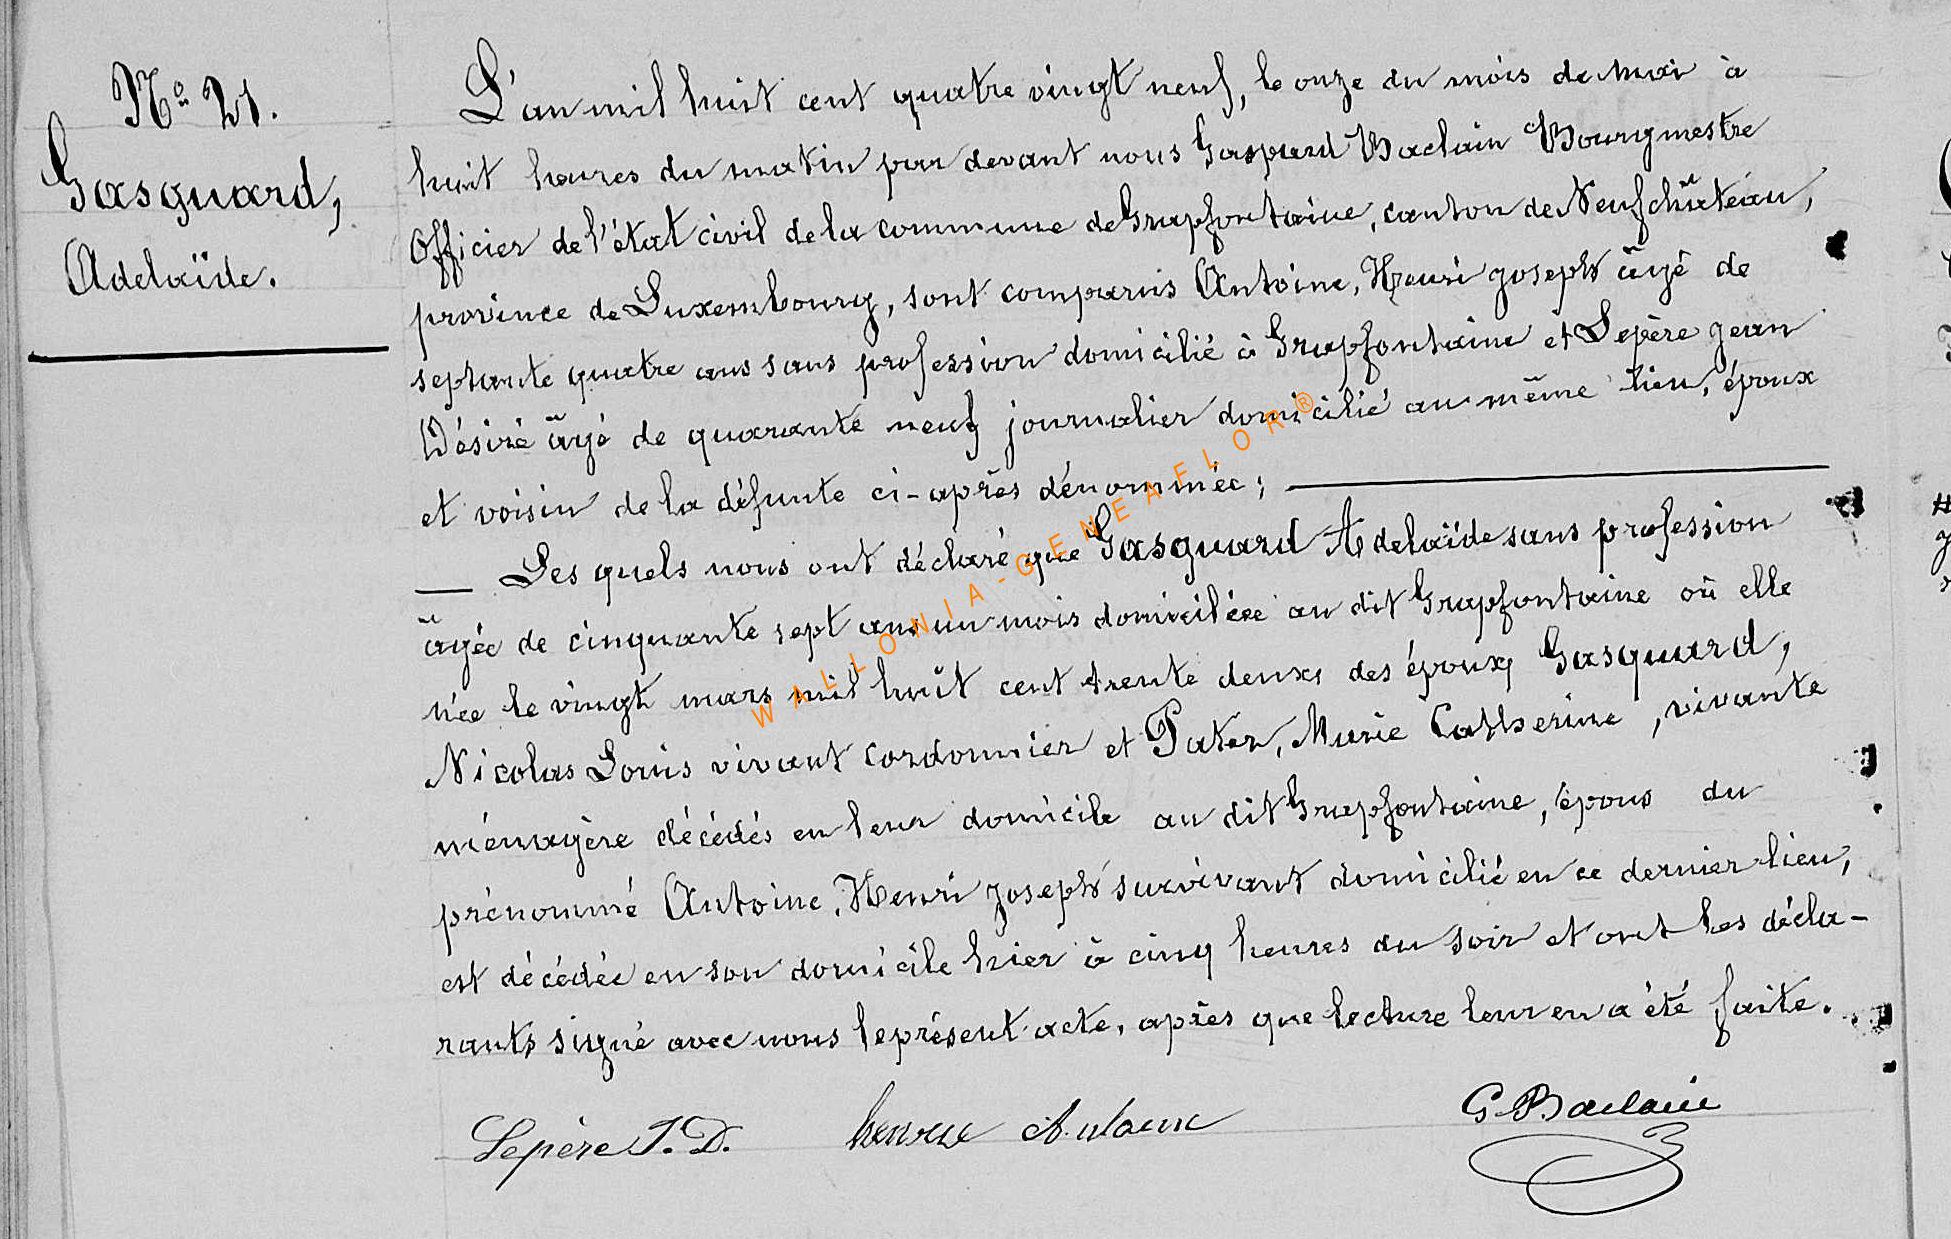 No 21.
Gasguard,
Adelaïde.
L'an mil huit cent quatre vingt neuf, le onze du mois de mai à
huit heures du matin par devant nous Gaspard Baclain Bourgmestre
Officier de l'état civil de la commune de Grapfontaine, canton de Neufchâteau,
province de Luxembourg, sont comparus Antoine, Henri Joseph âgé de
septante quatre ans sans profession domicilié à Grapfontaine et Lepère Jean
Désiré âgé de quarante neuf journalier domicilié au même lieu, époux
et voisin de la défunte ci-après dénommée;
Les quels nous ont déclaré que Gasguard Adelaïde sans profession
âgée de cinquante sept ans un mois domiciliée au dit Grapfontaine où elle
née le vingt mars mil huit cent trente deux des époux Gasguard,
Nicolas Louis vivant cordonnier et Pater, Marie Catherine, vivante
ménagère décédés en leur domicile au dit Grapfontaine, épous du
prénommé Antoine, Henri Joseph survivant domicilié en ce dernier lieu,
est décédée en son domicile hier à cinq heures du soir et ont les décla-
rants signé avec nous le présent acte, après que lecture leur en a été faite.
Lepère J. D. G Baclain
WALLONIA-GENEAFLOR®